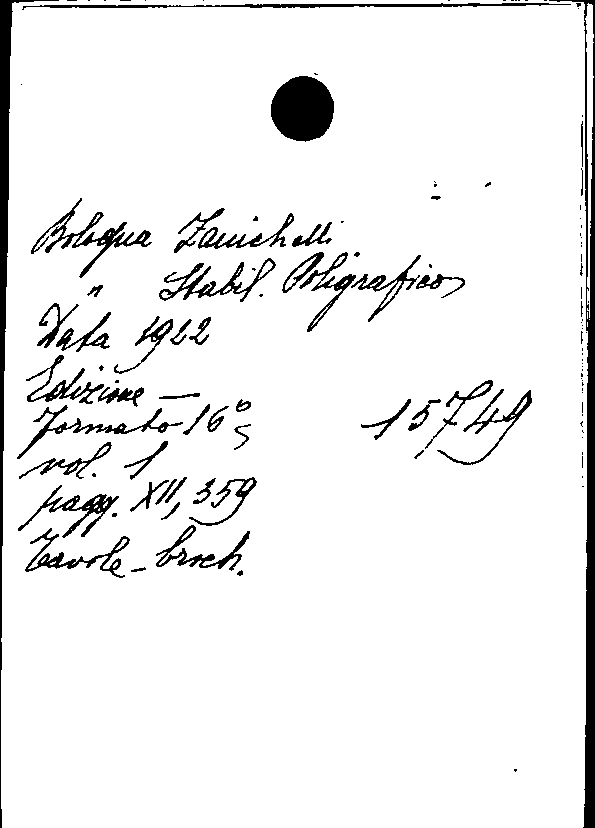 Bologna Zanichelli
" Stabil. Poligrafico
Data 1922
Edizione —
formato 16°
15749
vol. 1
pagg. XII, 359
Tavole - broch.